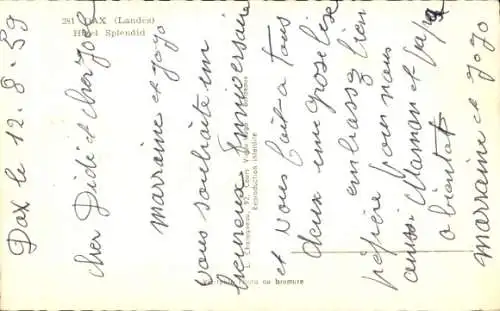 281 DAX (Landes)
Hôtel Splendid
Dax le 12.8.59
cher Didi et cher Joel
marraine et jojo
vous souhaite un
heureux Anniversaire
et vous fait a tous
deux une grose bise
embrassez bien
pépère pour nous
aussi Maman et papa
a bientot
marraine et jojo
Reproduction interdite